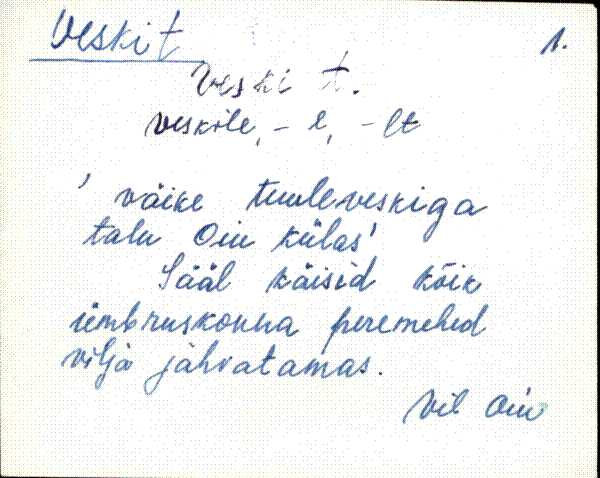 Veski t
1.
Veski t.
veskile, -l, -lt
'väike tuuleveskiga
talu Oiu külas'
Sääl käisid kõik
ümbruskonna peremehed
vilja jahvatamas.
Vil Oiu